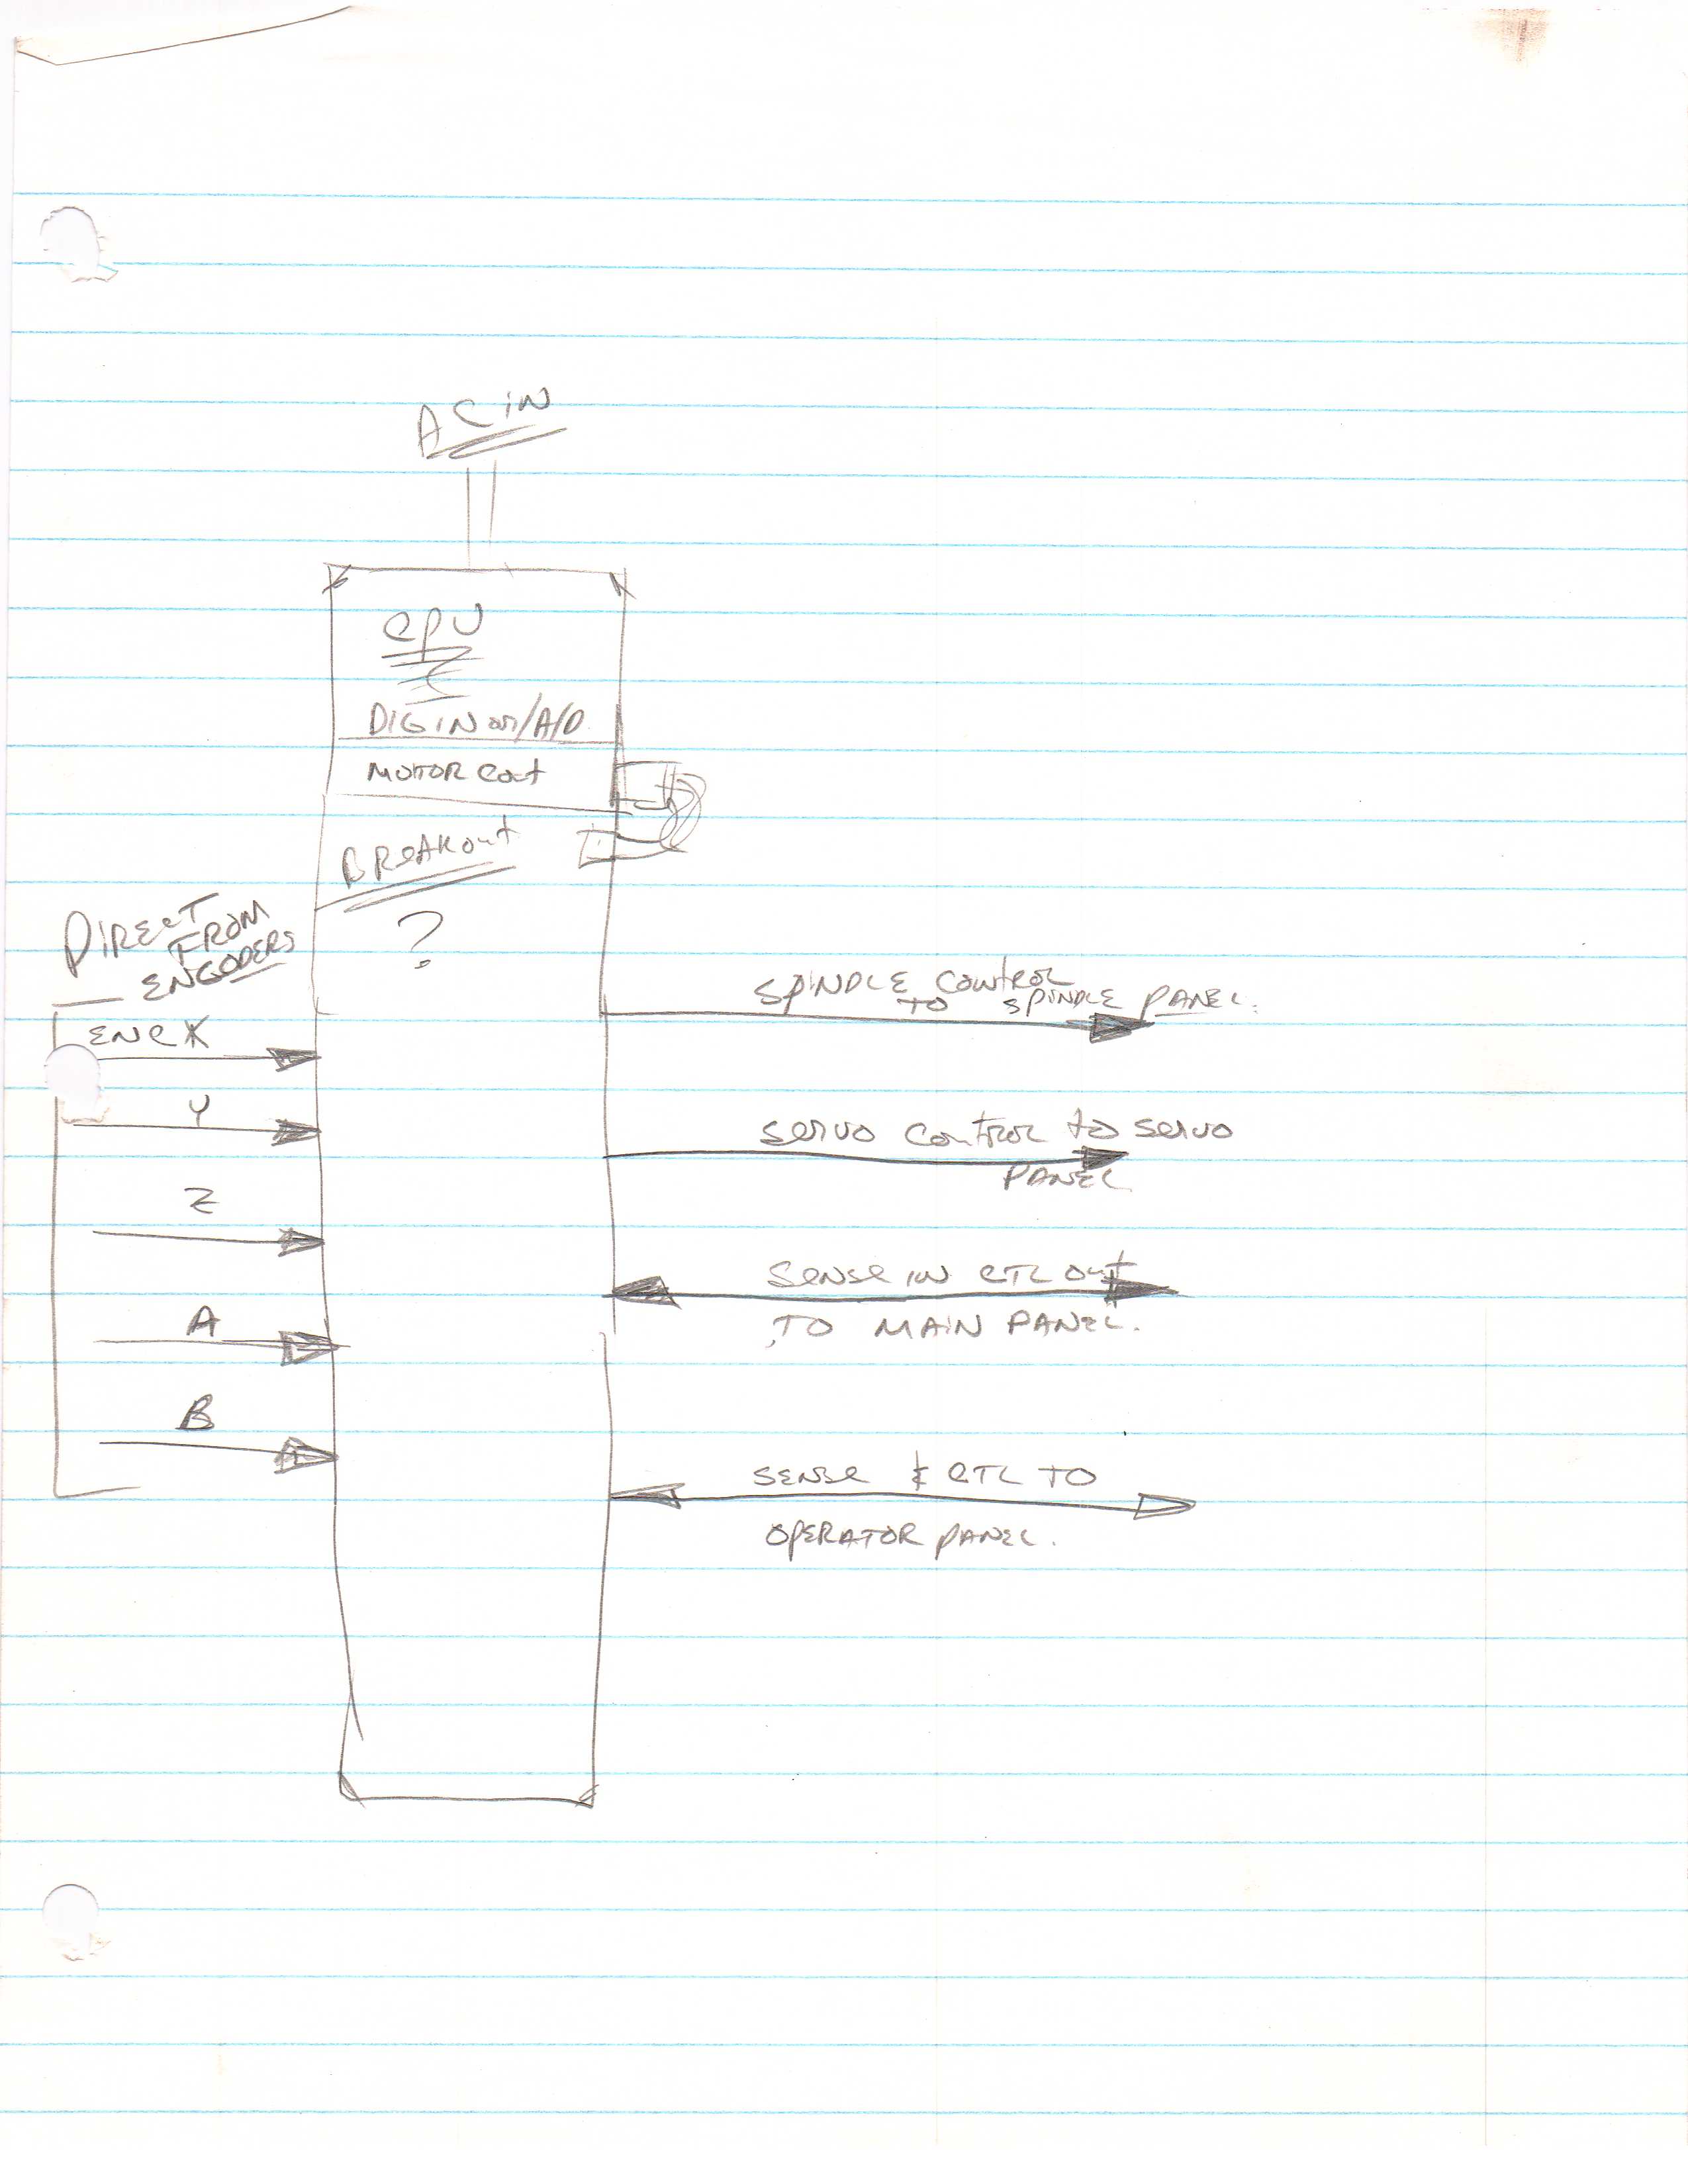 AC iN
CPU
DIG IN /A/D
MOTOR Cont
BREAKout
?
DIRECT
FROM
ENCODERS
ENC X
Y
Z
A
B
SPINDLE CONTROL
TO SPINDLE PANEL.
Servo Control to servo
PANEL
Sense IN CTL Out
TO MAIN PANEL.
SENSE & CTL TO
OPERATOR PANEL.